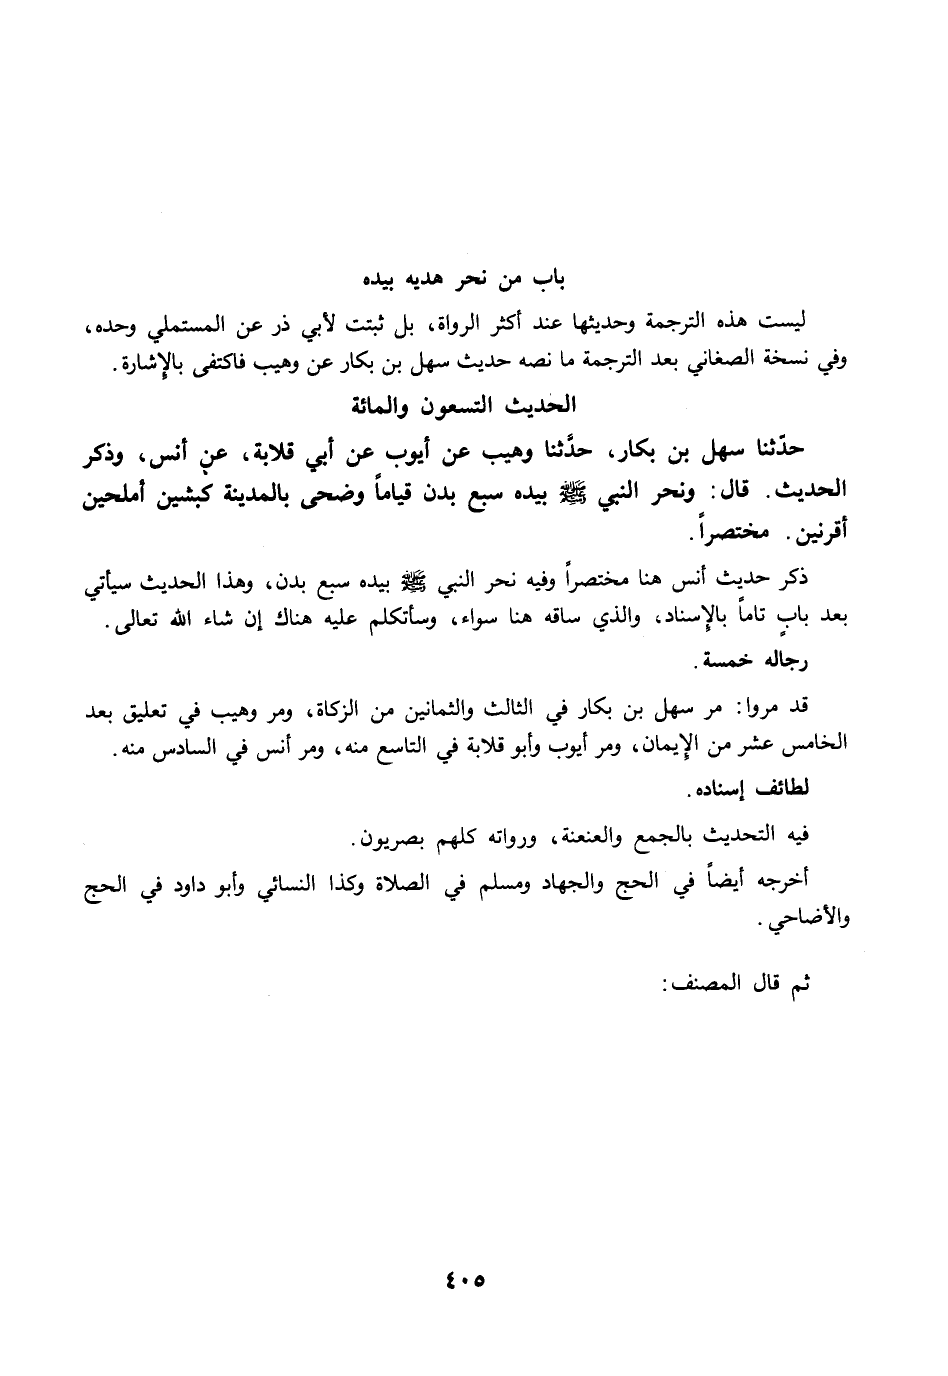 باب من نحر هديه بيده
ليست هذه الترجمة وحديثها عند أكثر الرواة، بل ثبتت لأبي ذر عن المستملي وحده،
وفي نسخة الصغاني بعد الترجمة ما نصه حديث سهل بن بكار عن وهيب فاكتفى بالإشارة.
الحديث التسعون والمائة
حدّثنا سهل بن بكار، حدَّثنا وهيب عن أيوب عن أبي قلابة، عنِ أنس، وذكر
الحديث. قال: ونحر النبي ﷺ بيده سبع بدن قياماً وضحى بالمدينة كبشين أملحين
أقرنين. مختصراً.
ذكر حديث أنس هنا مختصراً وفيه نحر النبي ﷺ بيده سبع بدن، وهذا الحديث سيأتي
بعد بابٍ تاماً بالإسناد، والذي ساقه هنا سواء، وسأتكلم عليه هناك إن شاء الله تعالى.
رجاله خمسة.
قد مروا: مر سهل بن بكار في الثالث والثمانين من الزكاة، ومر وهيب في تعليق بعد
الخامس عشر من الإيمان، ومر أيوب وأبو قلابة في التاسع منه، ومر أنس في السادس منه.
لطائف إسناده.
فيه التحديث بالجمع والعنعنة، ورواته كلهم بصريون.
أخرجه أيضاً في الحج والجهاد ومسلم في الصلاة وكذا النسائي وأبو داود في الحج
والأضاحي.
ثم قال المصنف:
٤٠٥